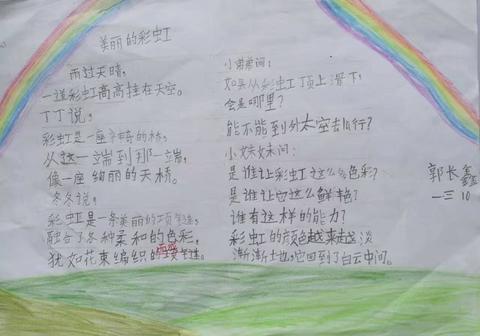 美丽的彩虹
雨过天晴,
一道彩虹高高挂在天空。
丁丁说,
彩虹是一座平错的桥,
从这一端到那一端,
像一座绚丽的天桥。
冬冬说,
彩虹是一条美丽的项链,
融合了各种柔和的色彩,
犹如花束编织的
小弟弟问:
如果从彩虹丁顶上滑下,
会是哪里?
能不能到外太空去爪行?
小妹妹问:
是谁让彩虹这么多色彩?
是谁让它这么鲜艳?
谁有这样的能力?
彩虹的颜色越来越淡
渐渐地,它回到了白云中间。
郭长鑫
一三 10